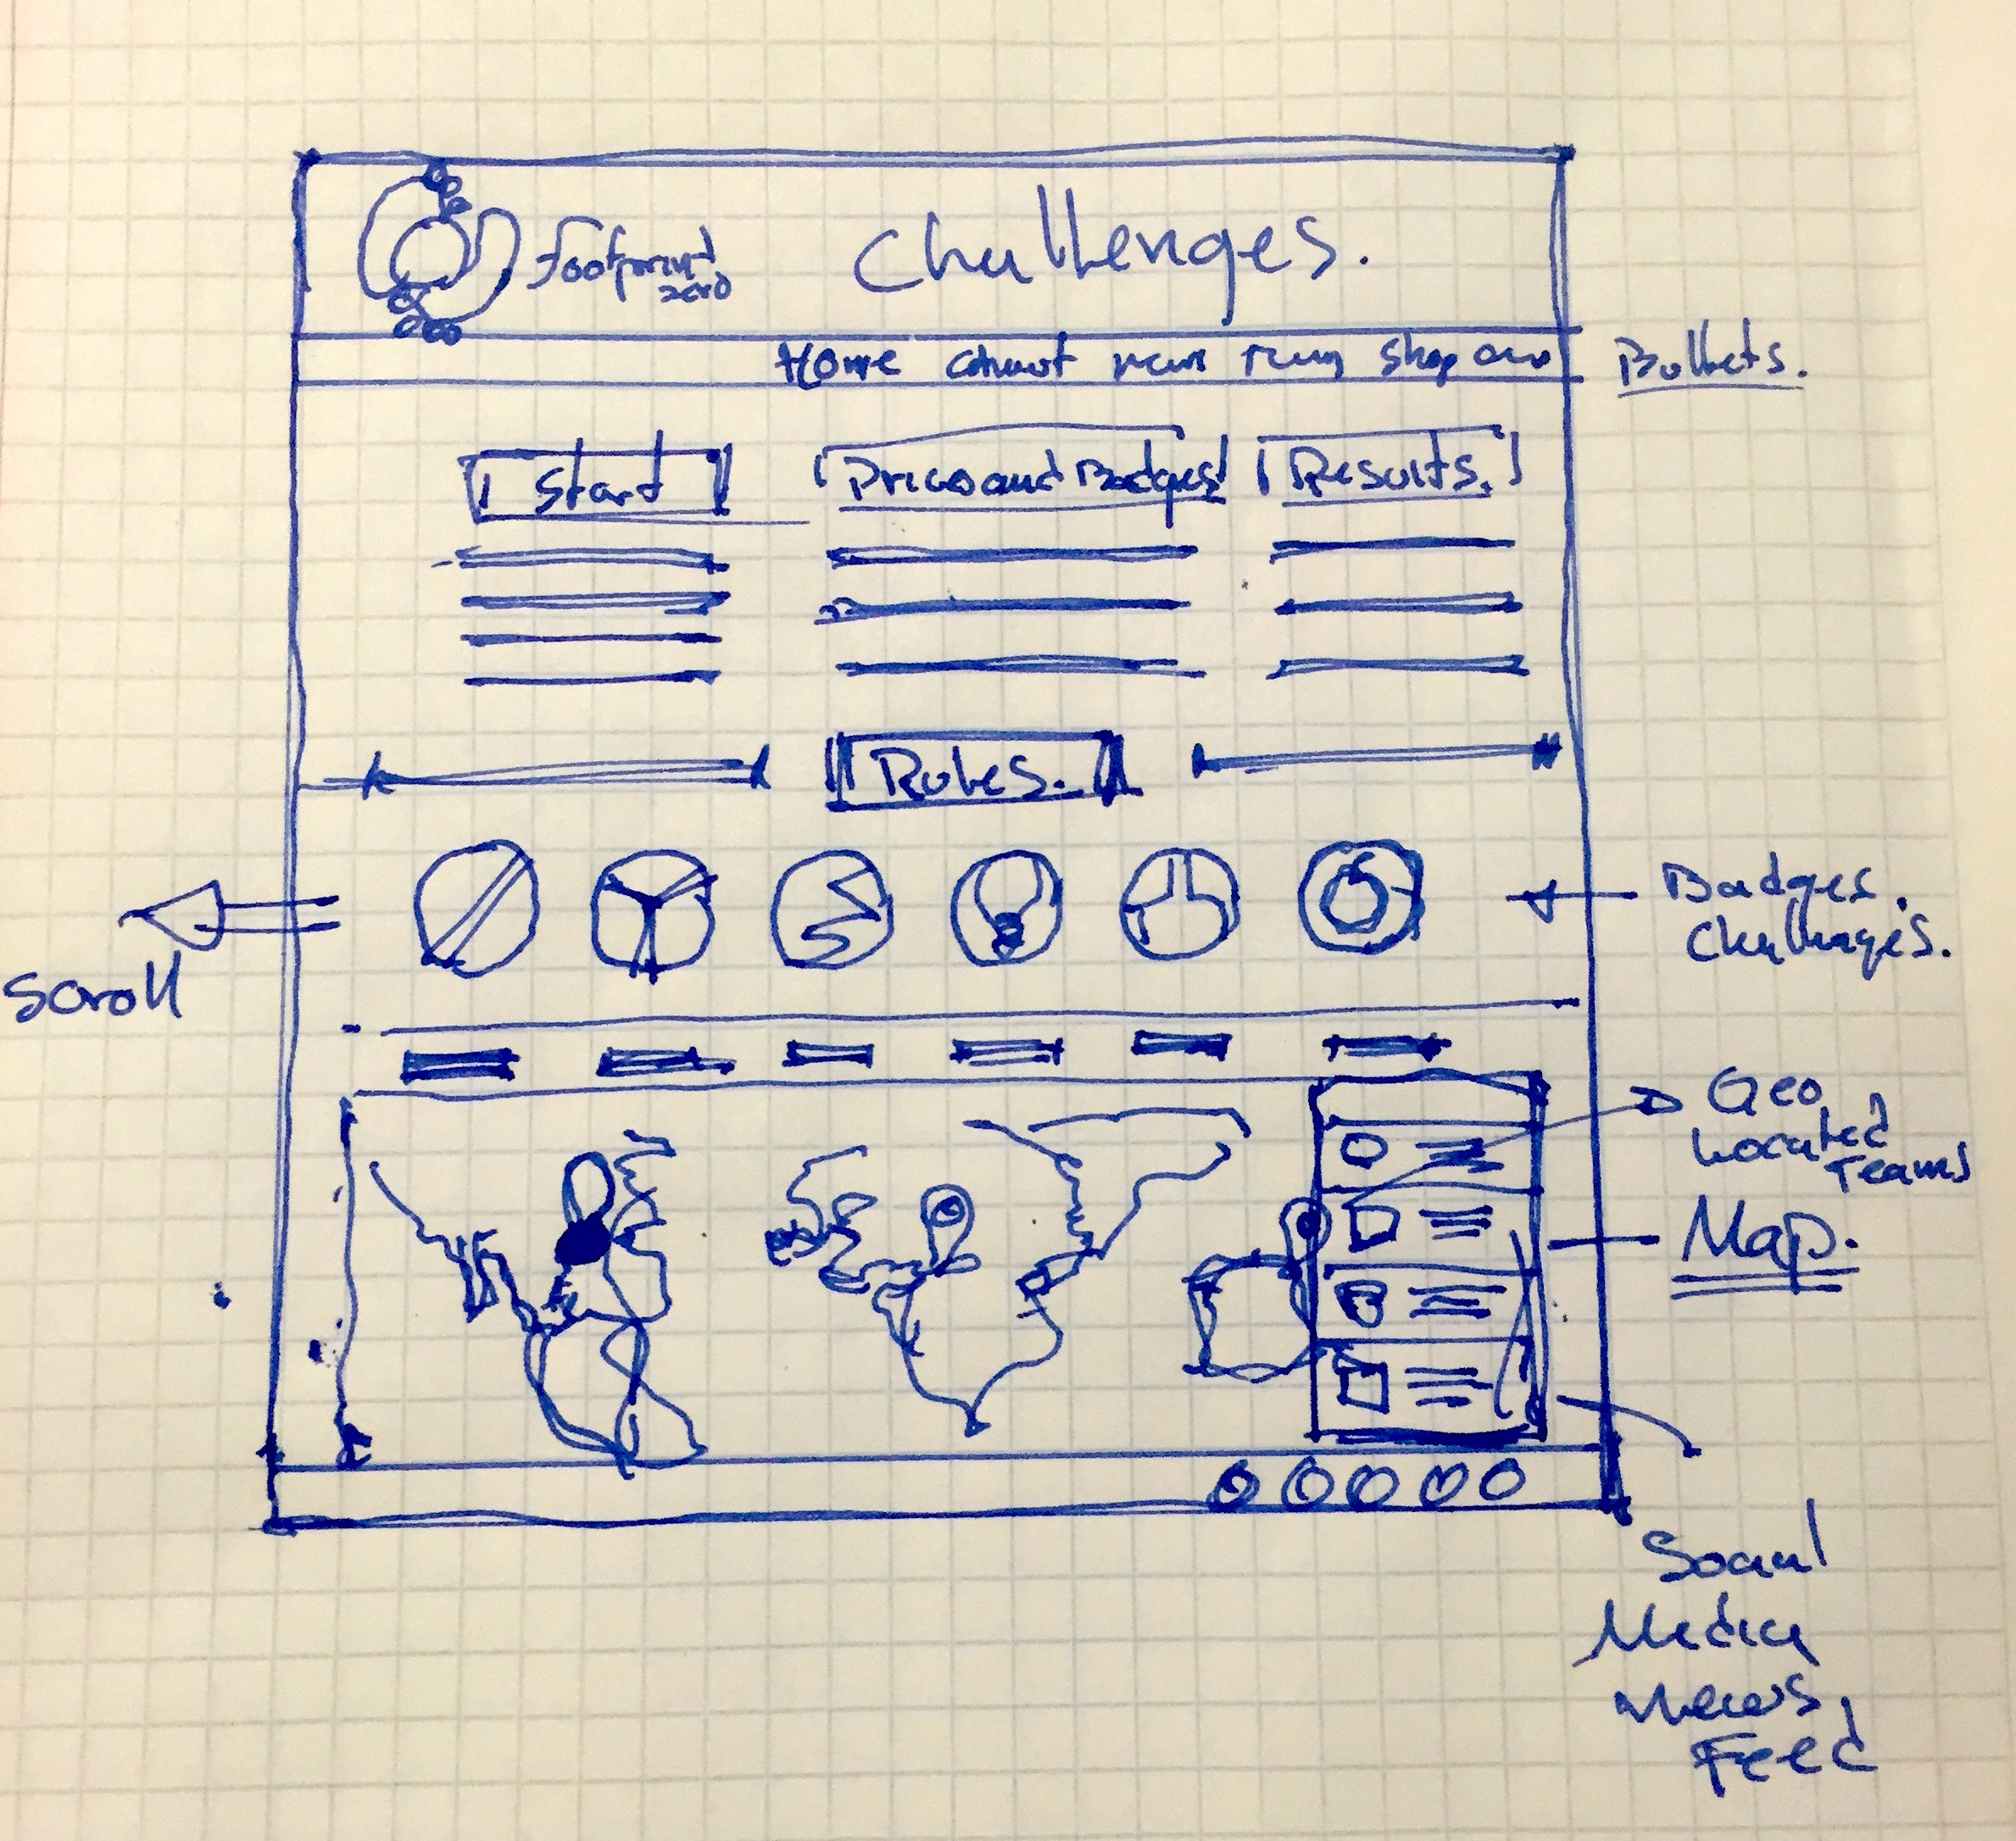 footprint
zero
Challenges.
Home shop
Bullets.
Start
and Badges
Results.
Rules.
Badges.
Challenges.
Scroll
Geo
Located
Teams
Map.
Social
Media
News
Feed